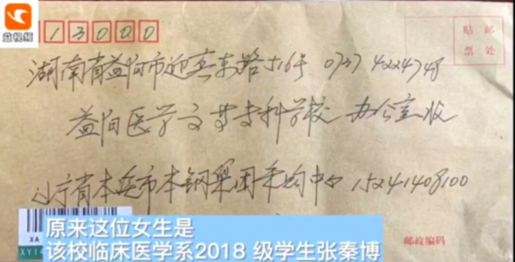 益视频
13000
贴 邮
票 处
湖南省益阳市迎宾东路516号 0737 4224748
益阳医学高等专科学校 办公室收
辽宁省本溪市本钢 15241408100
XA
原来这位女生是
该校临床医学系2018 级学生张秦博
邮政编码